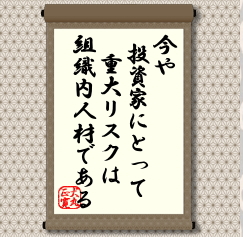 今や
投資家にとって
重大リスクは
組織内人材である